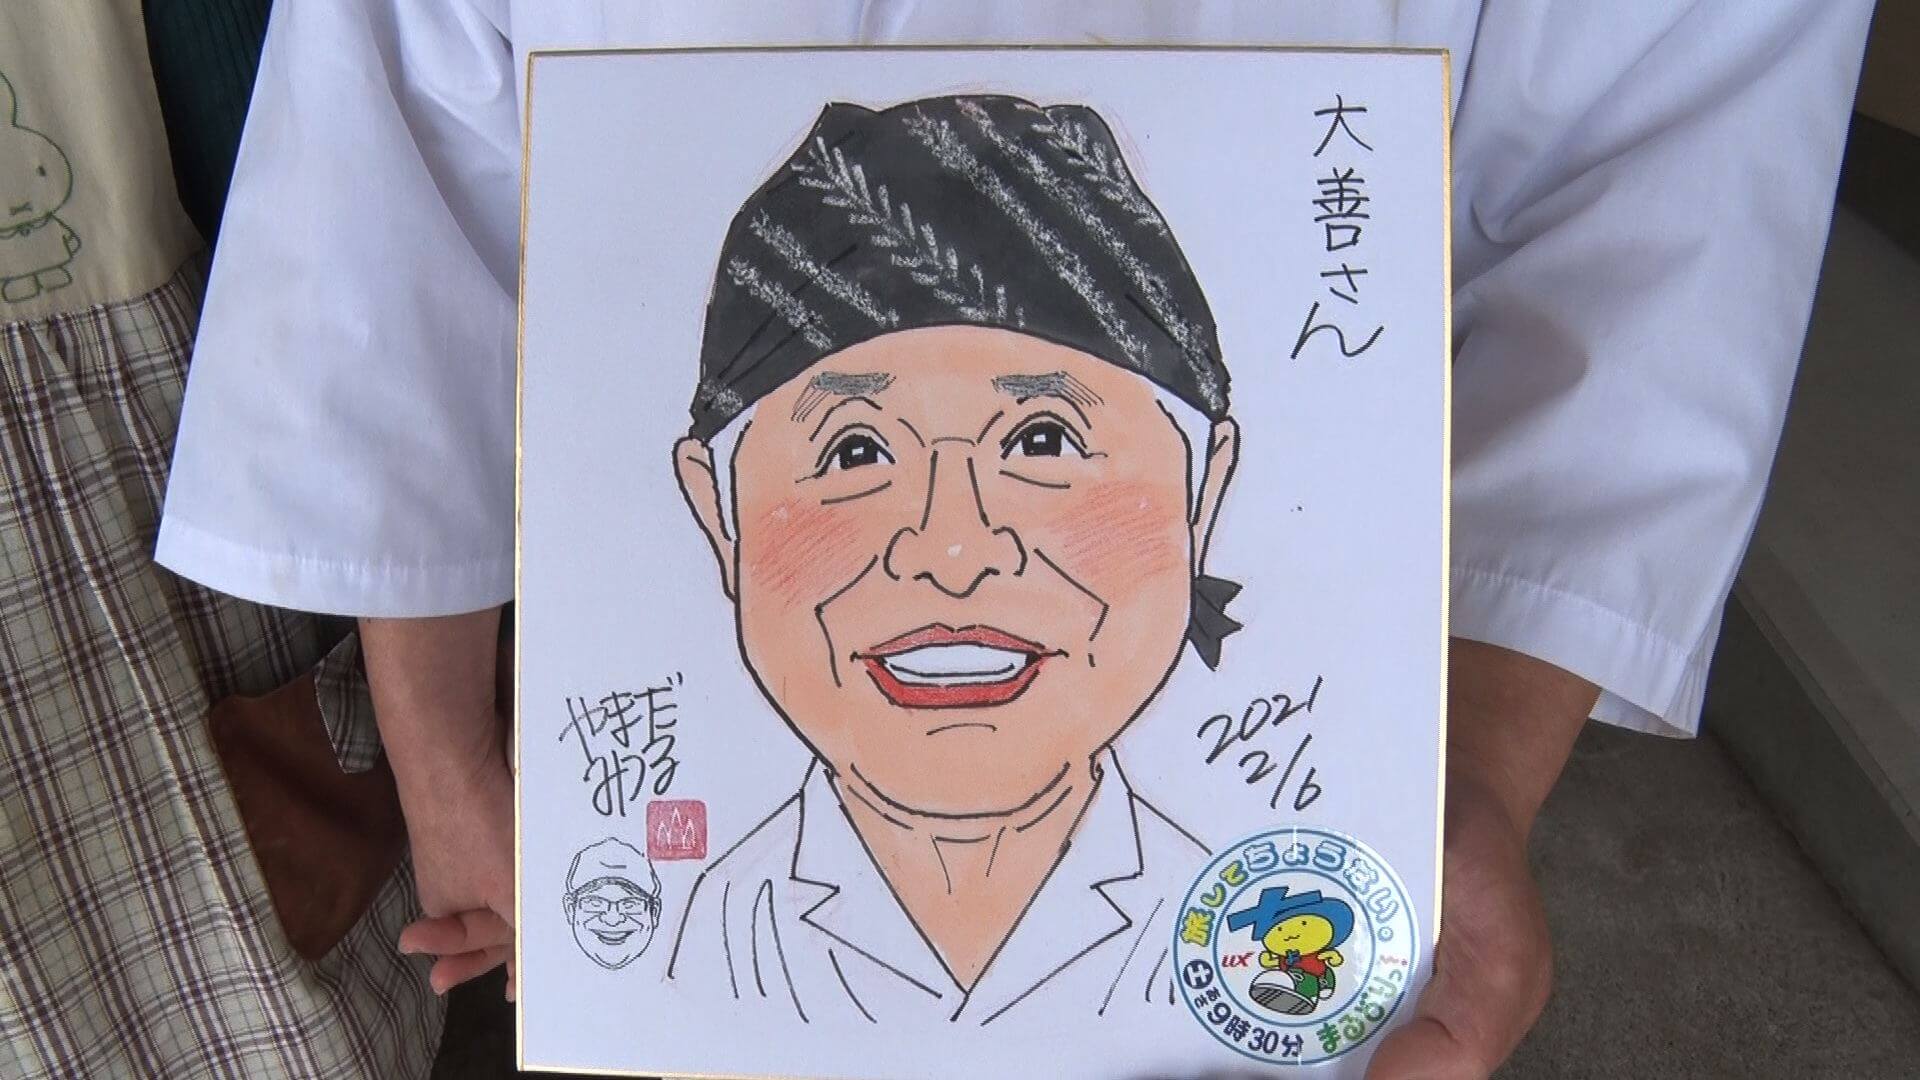 大善さん
やまだ
みつる
2021
2/6
旅してちょうない。
UX
土
あさ9時30分
まるどりっ!